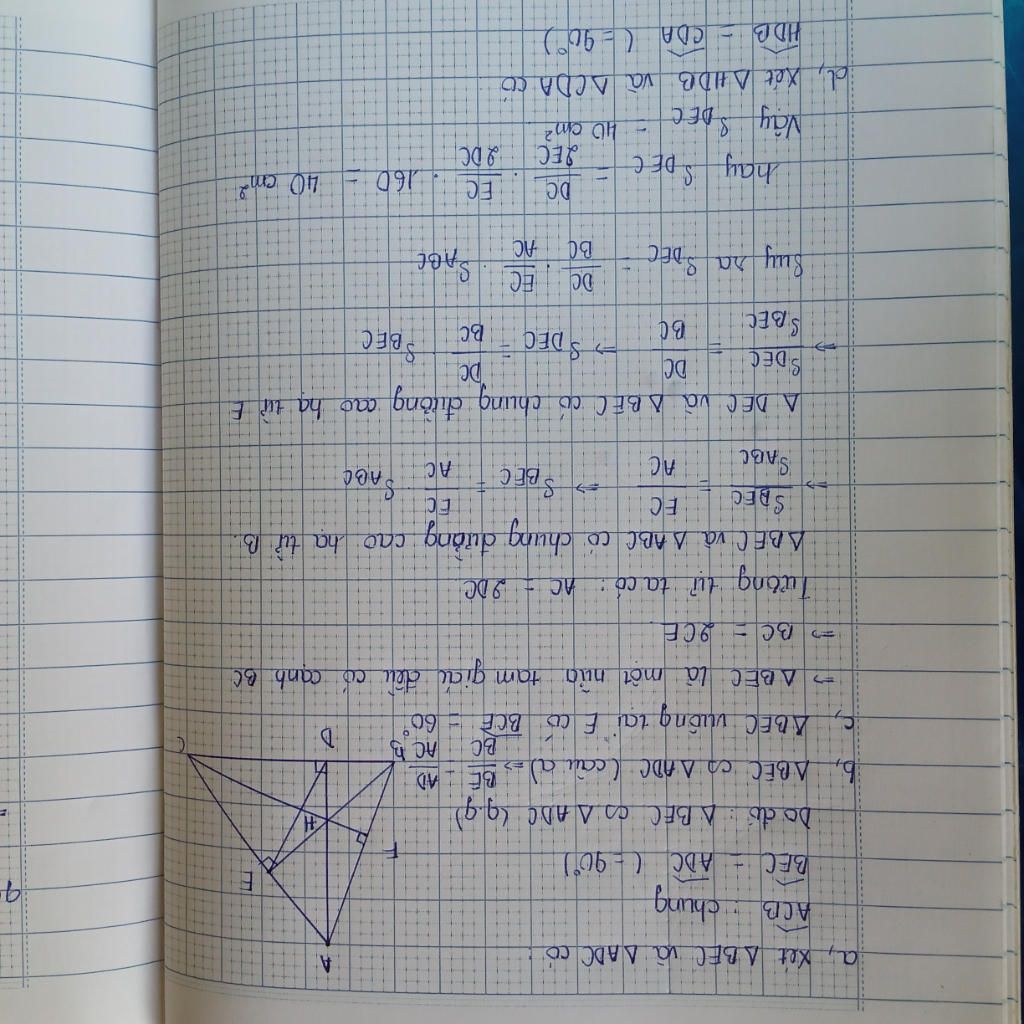 a, Xét ΔBEC và ΔADC có :
A
ACB : chung
E
BEC = ADC (= 90°)
F
Do đó : ΔBEC ∽ ΔADC (g.g)
H
b, ΔBEC ∽ ΔADC (câu a) => BE/BC = AD/AC
B D C
c, ΔBEC vuông tại E có BCE = 60°
=> ΔBEC là một nửa tam giác đều có cạnh BC
=> BC = 2CE
Tương tự ta có : AC = 2DC
ΔBEC và ΔABC có chung đường cao hạ từ B.
=> SBEC/SABC = EC/AC => SBEC = EC/AC · SABC
Δ DEC và ΔBEC có chung đường cao hạ từ E
=> SDEC/SBEC = DC/BC => SDEC = DC/BC · SBEC
Suy ra SDEC = DC/BC · EC/AC · SABC
hay SDEC = DC/2EC · EC/2DC · 160 = 40 cm²
Vậy SDEC = 40 cm²
d, Xét ΔHDB và ΔCDA có
HDB = CDA (= 90°)